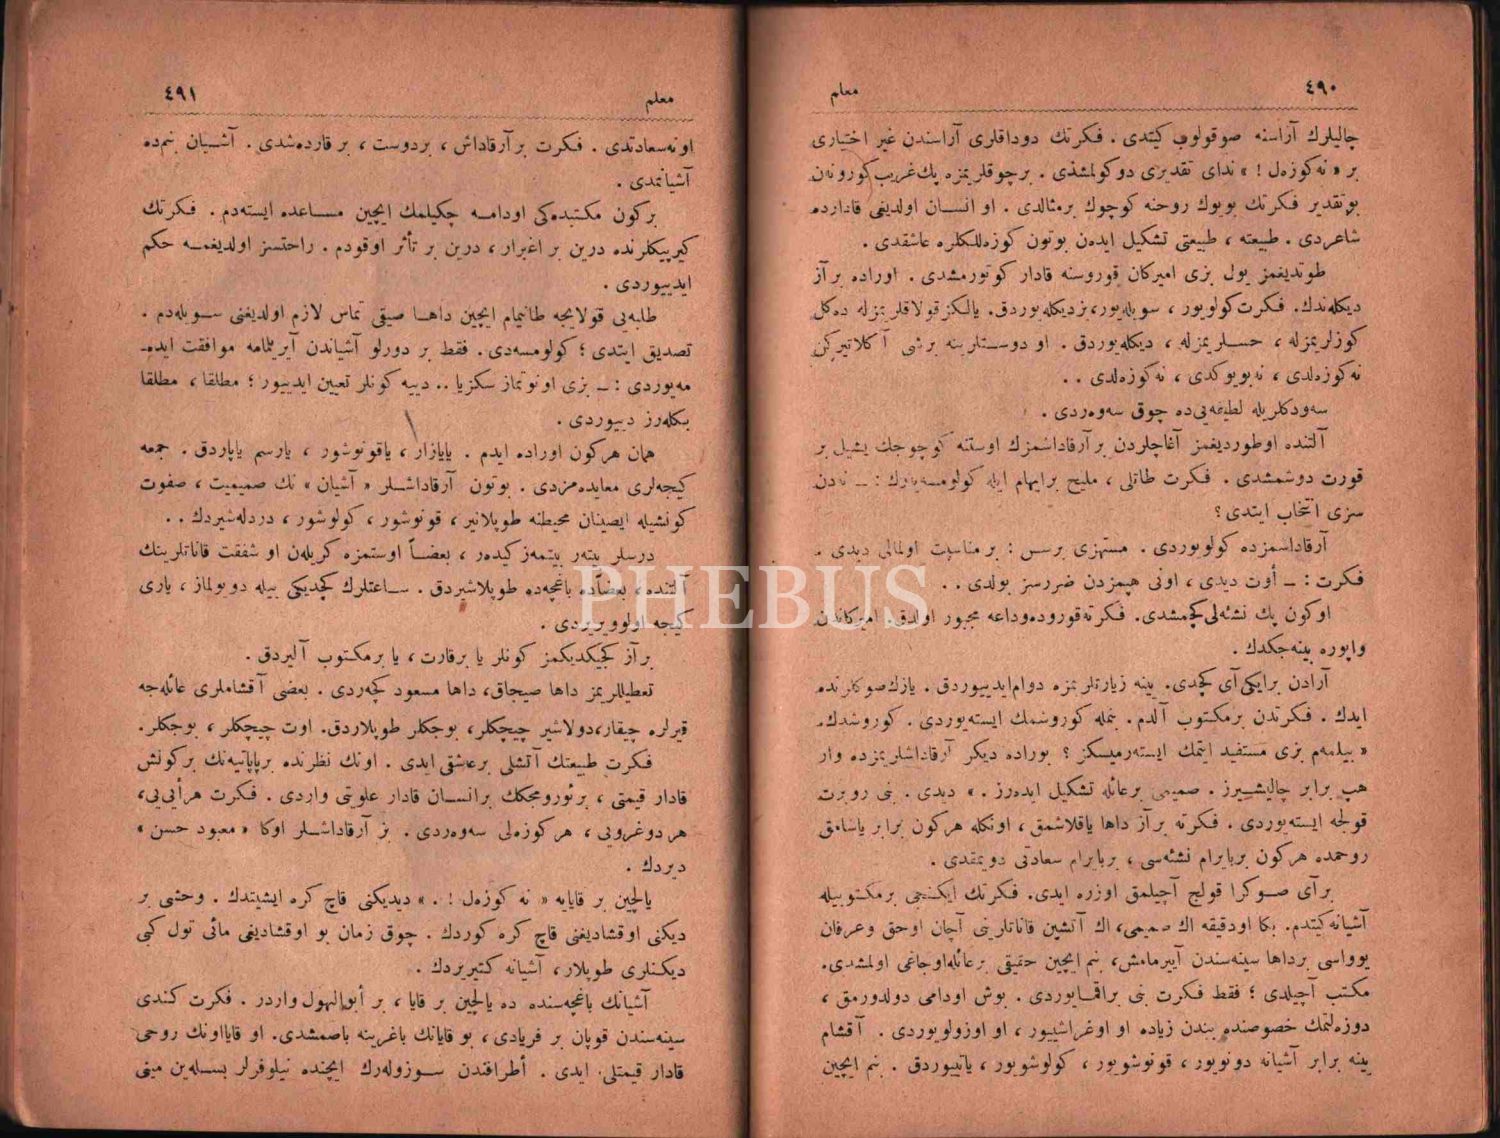 ٤٩٠
معلم
چالیلرك آراسنه صوقولوب كیتدی . فكرتك دوداقلری آراسندن غیر اختیاری
بر « نه‌كوزه‌ل ! » ندای تقدیری دوكولمشدی . برچوقلریمزه پك غریب كورونه‌ن
بوتقدیر فكرتك بویوك روحنه كوچوك برمثالدی . او انسان اولدیغی قادارده
شاعردی . طبیعته ، طبیعتی تشكیل ایده‌ن بوتون كوزه‌للكلره عاشقدی .
طوتدیغمز یول بزی امیركان قوروسنه قادار كوتورمشدی . اوراده برآز
دیكله‌ندك. فكرت كولویور ، سویله‌یور، بزدیكله‌یوردق. یالكزقولاقلریمزله ده‌كل
كوزلریمزله ، حسلریمزله ، دیكله‌یوردق . او دوستلرینه برشی آكلاتیركن
نه‌كوزه‌لدی ، نه‌بویوكدی ، نه‌كوزه‌لدی . .
سه‌ودكلریله لطیفه‌یی‌ده چوق سه‌وه‌ردی .
آلتنده اوطوردیغمز آغاچلردن برآرقاداشمزك اوستنه كوچوجك یشیل بر
قورت دوشمشدی . فكرت طاتلی ، ملیح برایهام ایله كولومسه‌یه‌رك : ــ نه‌دن
سزی انتخاب ایتدی ؟
آرقاداشمزده كولویوردی . مستهزی برسس : بر مناسبت اولمالی دیدی .
فكرت : ــ أوت دیدی ، اونی هپمزدن ضررسز بولدی . .
اوكون پك نشئه‌لی كچمشدی. فكرته‌قوروده‌وداعه مجبور اولدق. امیركاندن
واپوره بینه‌جكدك .
آرادن برایكی آی كچدی. ینه زیارتلریمزه دوام‌ایدییوردق . یازك‌صوكلرنده
ایدك . فكرتدن برمكتوب آلدم . بنمله كوروشمك ایسته‌یوردی . كوروشدك.
« بیلمه‌م بزی مستفید ایتمك ایسته‌رمیسكز ؟ بوراده دیكر آرقاداشلریمزده وار
هپ برابر چالیشیرز . صمیمی برعائله تشكیل ایده‌رز . » دیدی . بنی روبرت
قولجه ایسته‌یوردی . فكرته برآز داها یاقلاشمق ، اونكله هركون برابر یاشامق
روحمده هركون بربایرام نشئه‌سی ، بربایرام سعادتی دویمقدی .
برآی صوكرا قولج آچیلمق اوزره ایدی. فكرتك ایكنجی برمكتوبیله
آشیانه‌كیتدم. بكا اودقیقه اك صمیمی، اك آتشین قاناتلرینی آچان اوحق وعرفان
یوواسی برداها سینه‌سندن آییرمامش، بنم ایچین حقیقی برعائله‌اوجاغی اولمشدی.
مكتب آچیلدی ؛ فقط فكرت بنی براقمایوردی . بوش اودامی دولدورمق ،
دوزه‌لتمك خصوصنده بندن زیاده او اوغراشییور ، او اوزولویوردی . آقشام
ینه برابر آشیانه دونویور ، قونوشویور ، كولوشویور ، یاتییوردق . بنم ایچین
٤٩١
معلم
اونه‌سعادتدی . فكرت برآرقاداش ، بردوست ، برقارده‌شدی . آشیان بنم‌ده
آشیانمدی .
بركون مكتبده‌كی اودامه چكیلمك ایچین مساعده ایسته‌دم . فكرتك
كیرپیكلرنده درین بر اغبرار ، درین بر تأثر اوقودم . راحتسز اولدیغمه حكم
ایدییوردی .
طلبه‌یی قولایجه طانیمام ایچین داها صیقی تماس لازم اولدیغنی سویله‌دم .
تصدیق ایتدی ؛ كولومسه‌دی. فقط بر دورلو آشیاندن آیریلمامه موافقت ایده‌ـ
مه‌یوردی : ــ بزی اونوتماز سكزیا .. دییه كونلر تعیین ایدییور ؛ مطلقا ، مطلقا
بكله‌رز دییوردی .
همان هركون اوراده ایدم . یایازار ، یاقونوشور ، یارسم یاپاردق . جمعه
كیجه‌لری معایده‌مزدی . بوتون آرقاداشلر « آشیان » نك صمیمیت ، صفوت
كونشیله ایصینان محیطنه طوپلانیر، قونوشور ، كولوشور ، دردله‌شیردك . .
درسلر بیته‌ر بیتمه‌ز كیده‌ر ، بعضاً اوستمزه كریله‌ن او شفقت قاناتلرینك
آلتنده ، بعضاًده باغچه‌ده طوپلاشیردق . ساعتلرك كچدیكی بیله دویولماز ، یاری
كیجه اولوویریردی .
برآز كجیكدیكمز كونلر یا برقارت ، یا برمكتوب آلیردق .
تعطیللریمز داها صیجاق، داها مسعود كچه‌ردی . بعضی آقشاملری عائله‌جه
قیرلره چیقار،دولاشیر چیچكلر، بوجكلر طوپلاردق. اوت چیچكلر ، بوجكلر.
فكرت طبیعتك آتشلی برعاشقی ایدی . اونك نظرنده برپاپاتیه‌نك بركونش
قادار قیمتی ، برئورومجكك برانسان قادار علویتی واردی . فكرت هرأیی‌یی،
هردوغرویی ، هركوزه‌لی سه‌وه‌ردی . بز آرقاداشلر اوكا « معبود حسن »
دیردك .
یالچین بر قایایه « نه كوزه‌ل ! . » دیدیكنی قاچ كره ایشیتدك . وحشی بر
دیكنی اوقشادیغنی قاچ كره كوردك . چوق زمان بو اوقشادیغی مائی تول كبی
دیكنلری طوپلار، آشیانه كتیریردك .
آشیانك باغچه‌سنده ده یالچین بر قایا ، بر أبوالهول واردر . فكرت كندی
سینه‌سندن قوپان بر فریادی ، بو قایانك باغرینه باصمشدی. او قایااونك روحی
قادار قیمتلی ایدی . أطرافندن سوزوله‌رك ایچنده نیلوفرلر بسله‌ین مینی
PHEBUS